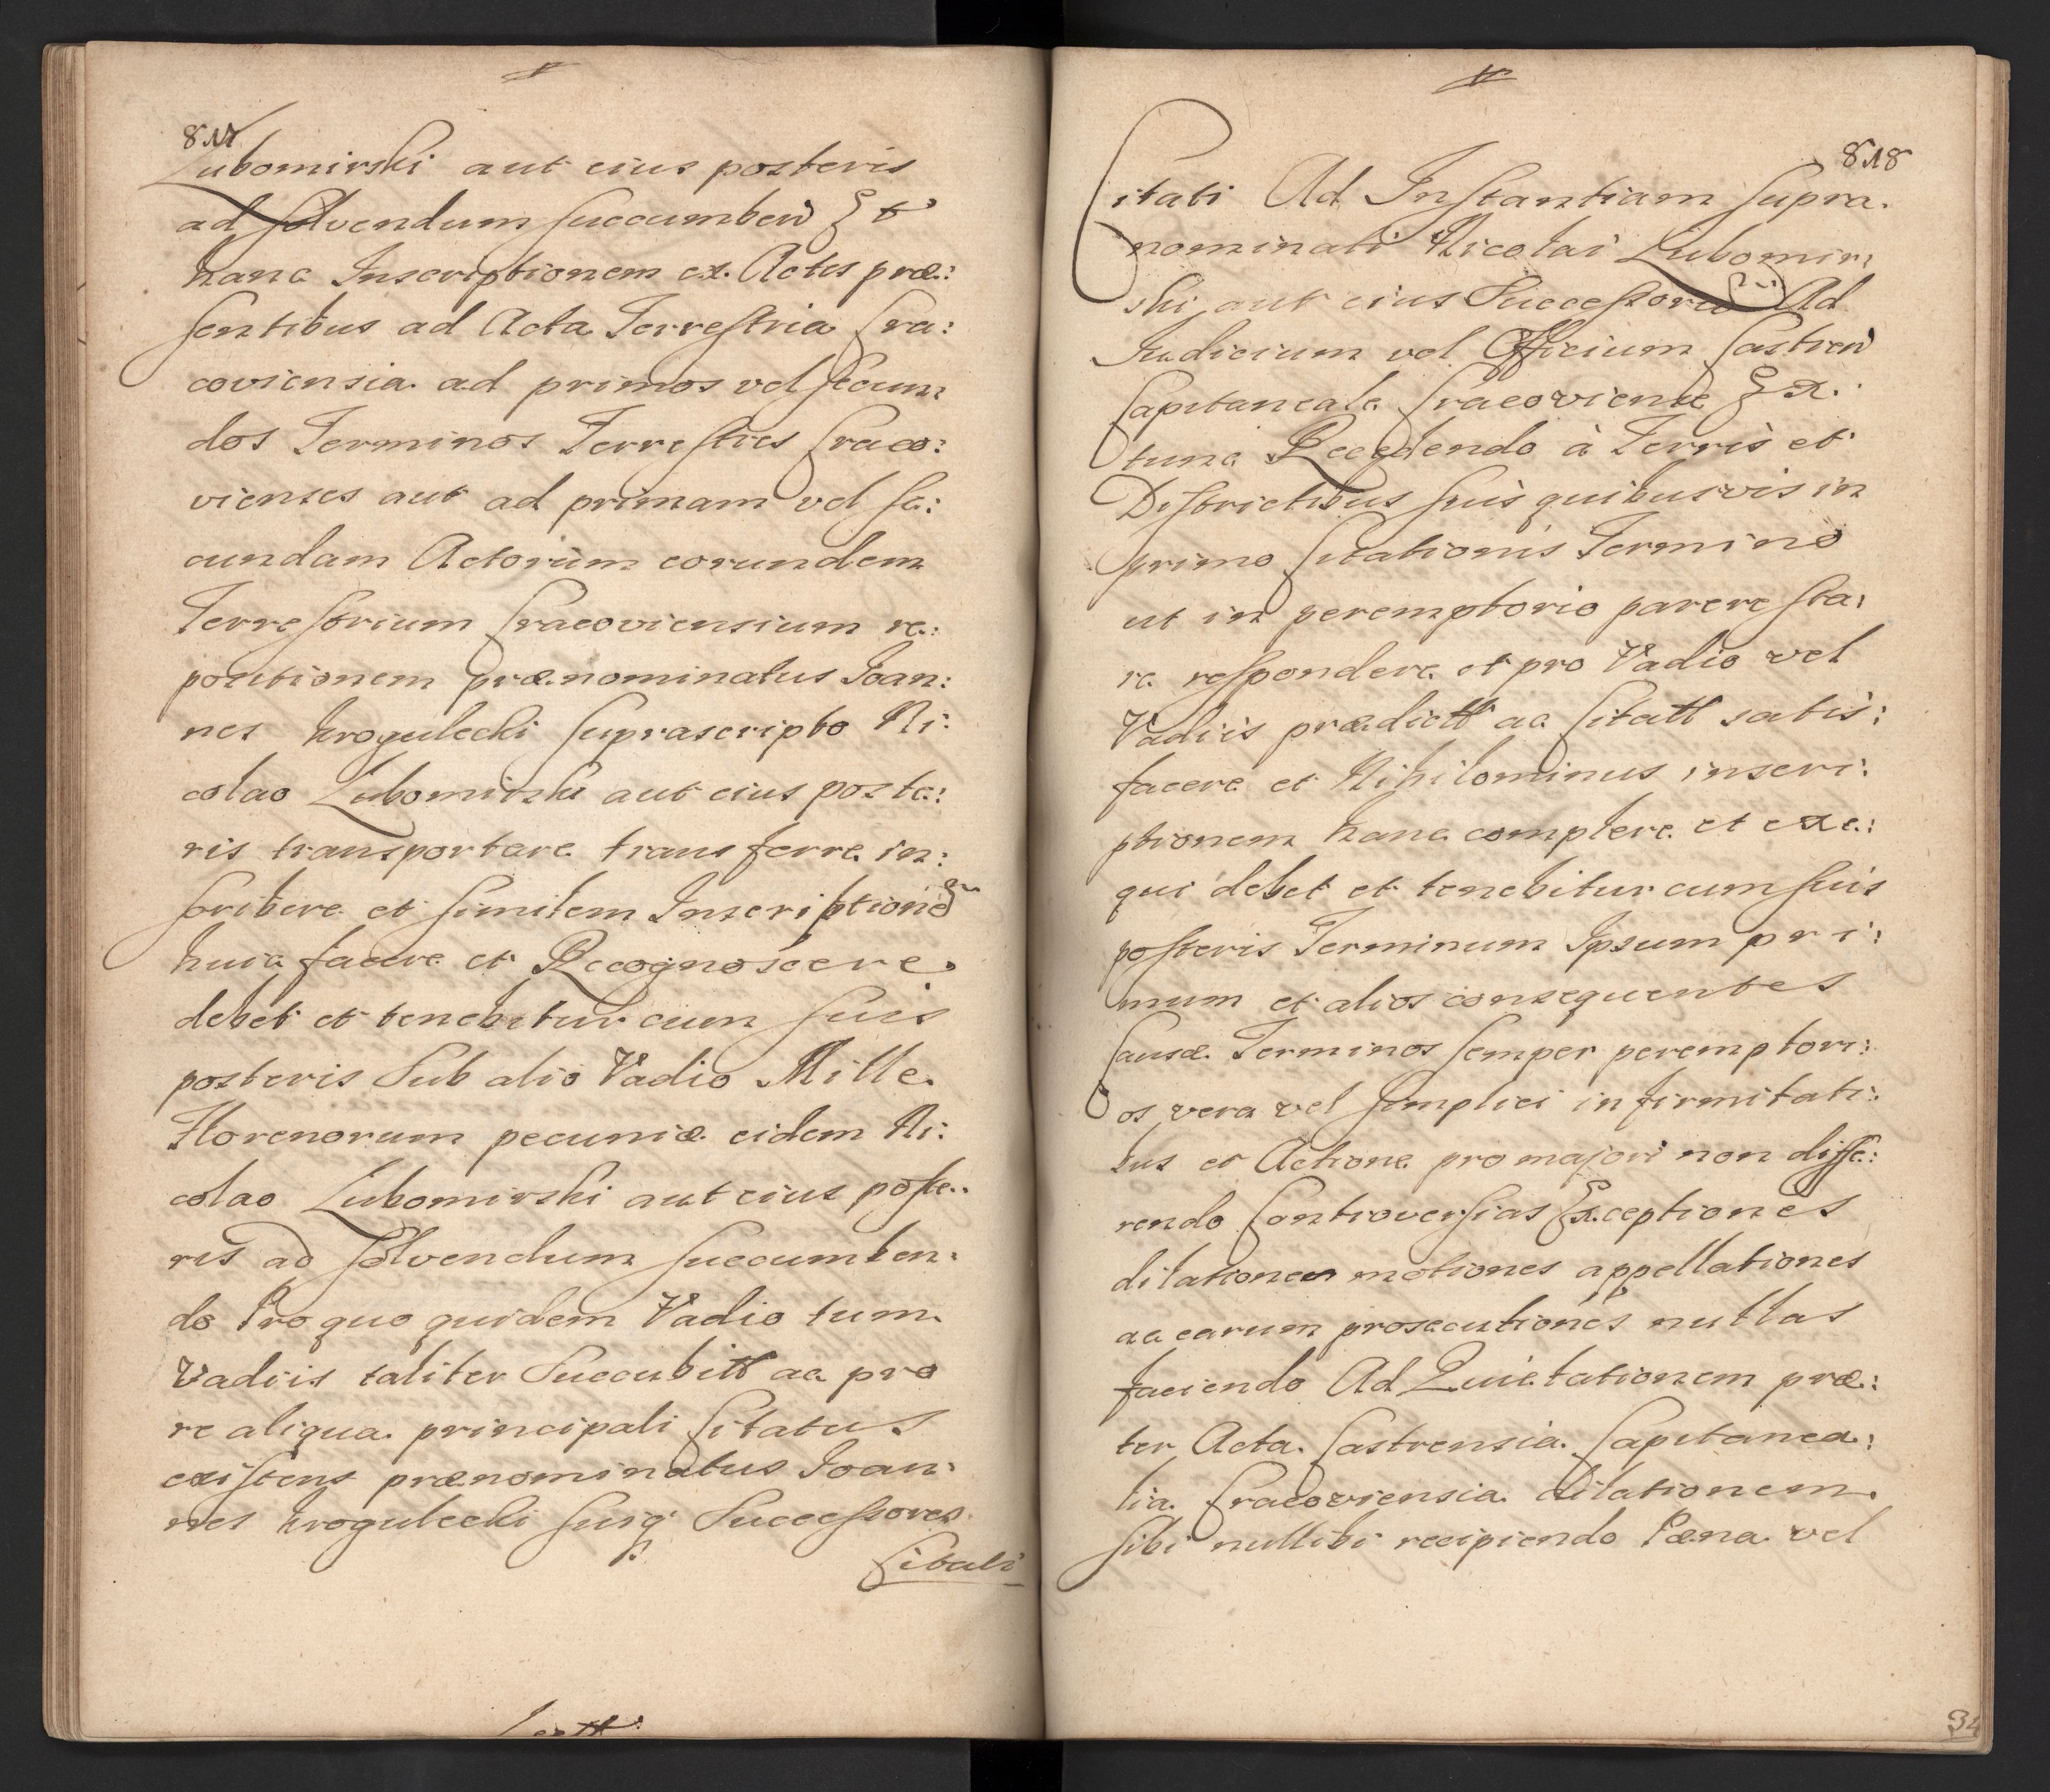 817
Lubomirski aut eius posteris
ad solvendum succumben Et
hanc Inscriptionem ex Actis præ:
sentibus ad Acta Terrestria Cra:
coviensia ad primos vel secun:
dos Terminos Terrestres Craco:
vienses aut ad primam vel se:
cundam Actorum eorundem
Terrestrium Cracoviensium re:
positionem prænominatus Joan:
nes Krogulecki suprascripto Ni:
colao Lubomirski aut eius poste:
ris transportare transferre in:
scribere et similem Inscriptione
huic facere et Recognoscere
debet et tenebitur cum suis
posteris Sub alio Vadio Mille
Florenorum pecuniæ eidem Ni:
colao Lubomirski aut eius poste:
ris ad solvendum succumben:
do Pro quo quidem Vadio tum
Vadiis taliter Succubitt ac pro
re aliqua principali Citatus
existens prænominatus Joan:
nes Krogulecki suiq Successores
Citati
818
Citati Ad Instantiam supra:
nominati Nicolai Lubomir:
ski aut eius Successorum Ad
Judicium vel Officium Castren
Capitaneale Cracoviense Ex
tunc Recedendo à Terris et
Districtibus suis quibusvis in
primo Citationis Termino
ut in peremptorio parere sta:
re respondere et pro Vadio vel
Vadiis prædictt ac Citatt satis:
facere et Nihilominus inscri:
ptionem hanc complere et exe:
qui debet et tenebitur cum suis
posteris Terminum Ipsum pri:
mum et alios consequentes
Causæ Terminos semper peremptori:
os vera vel simplici infirmitati:
bus et Actione pro majori non diffe:
rendo Controversias Exceptiones
dilationes motiones appellationes
ac earum prosecutiones nullas
faciendo Ad Quietationem præ:
ter Acta Castrensia Capitanea:
lia Cracoviensia dilationem
sibi nullibi recipiendo Pæna vel
34